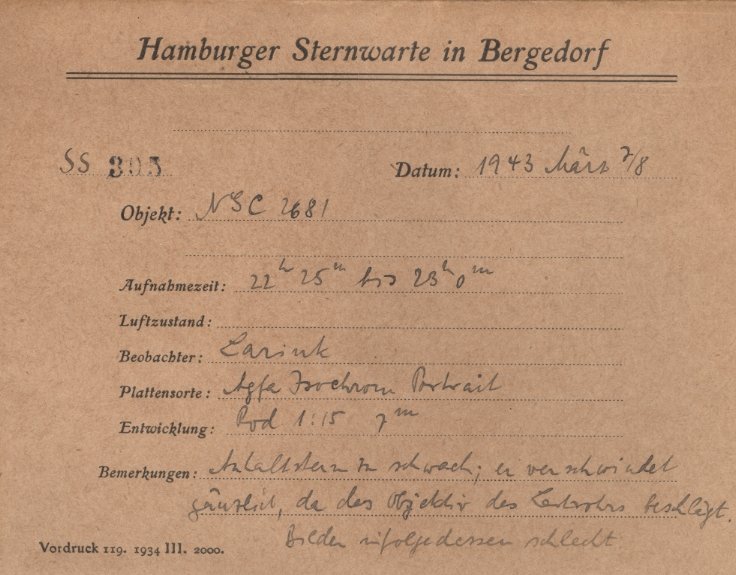 Hamburger Sternwarte in Bergedorf
SS 305
Datum: 1943 März 7/8
Objekt: NGC 2681
Aufnahmezeit: 22h 25m bis 23h 0m
Luftzustand:
Beobachter: Larink
Plattensorte: Agfa Isochrom Portrait
Entwicklung: Rod 1:15 7m
Bemerkungen: Anhaltstern zu schwach; er verschwindet
gänzlich, da das Objektiv des Leitrohrs beschlägt.
Bilder infolgedessen schlecht
Vordruck 119. 1934 III. 2000.